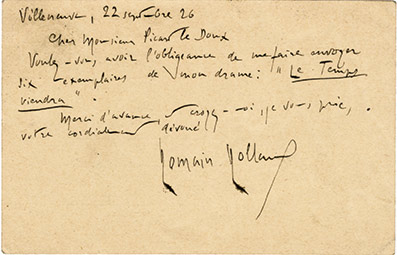 Villeneuve, 22 septbre 26
Cher Monsieur Picart le Doux
Voulez-vous, avoir l'obligeance de me faire envoyer
six exemplaires de mon drame : " Le Temps
viendra ".
Merci d'avance, et croyez-moi, je vous prie,
votre cordialement dévoué
Romain Rolland